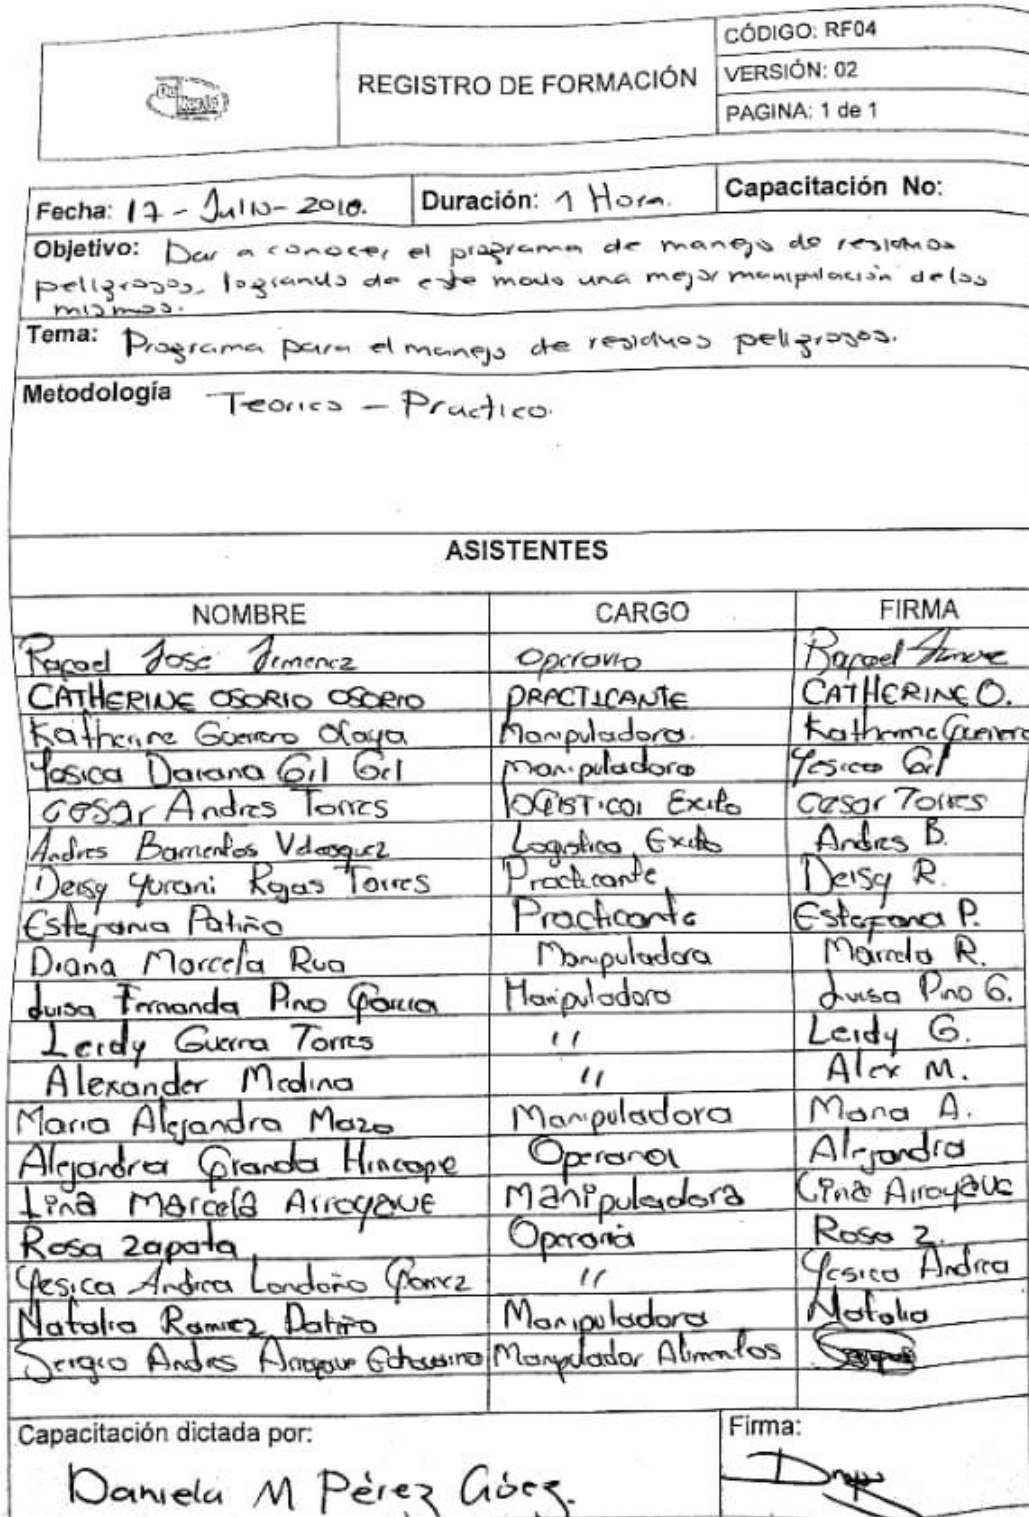 CÓDIGO: RF04
REGISTRO DE FORMACIÓN
VERSIÓN: 02
PAGINA: 1 de 1
Fecha: 17 - Julio - 2018. Duración: 1 Hora. Capacitación No:
Objetivo: Dar a conocer el programa de manejo de residuos
peligrosos, logrando de este modo una mejor manipulación de los
mismos.
Tema: Programa para el manejo de residuos peligrosos.
Metodología Teorico - Practico.
ASISTENTES
NOMBRE CARGO FIRMA
Rafael Jose Jimenez Operario Rafael
CATHERINE OSORIO OSORIO PRACTICANTE CATHERINE O.
Katherine Guerrero Olaya Manipuladora. Katherine Guerrero
Yesica Daiana Gil Gil Manipuladora Yesica Gil
Cesar Andres Torres Logistica Exito Cesar Torres
Andres Barrientos Velasquez Logistica Exito Andres B.
Deisy Yurani Rojas Torres Practicante Deisy R.
Estefania Patiño Practicante Estefania P.
Diana Marcela Rua Manipuladora Marcela R.
Luisa Fernanda Pino Garcia Manipuladora Luisa Pino G.
Leidy Guerra Torres " Leidy G.
Alexander Medina " Alex M.
Maria Alejandra Mazo Manipuladora Maria A.
Alejandra Granda Hincapie Operaria Alejandra
Lina Marcela Arroyave Manipuladora Lina Arroyave
Rosa Zapata Operaria Rosa Z.
Yesica Andrea Londoño Gomez " Yesica Andrea
Natalia Ramirez Patiño Manipuladora Natalia
Sergio Andres Arroyave Manipulador Alimentos
Capacitación dictada por: Firma:
Daniela M Pérez Góez.